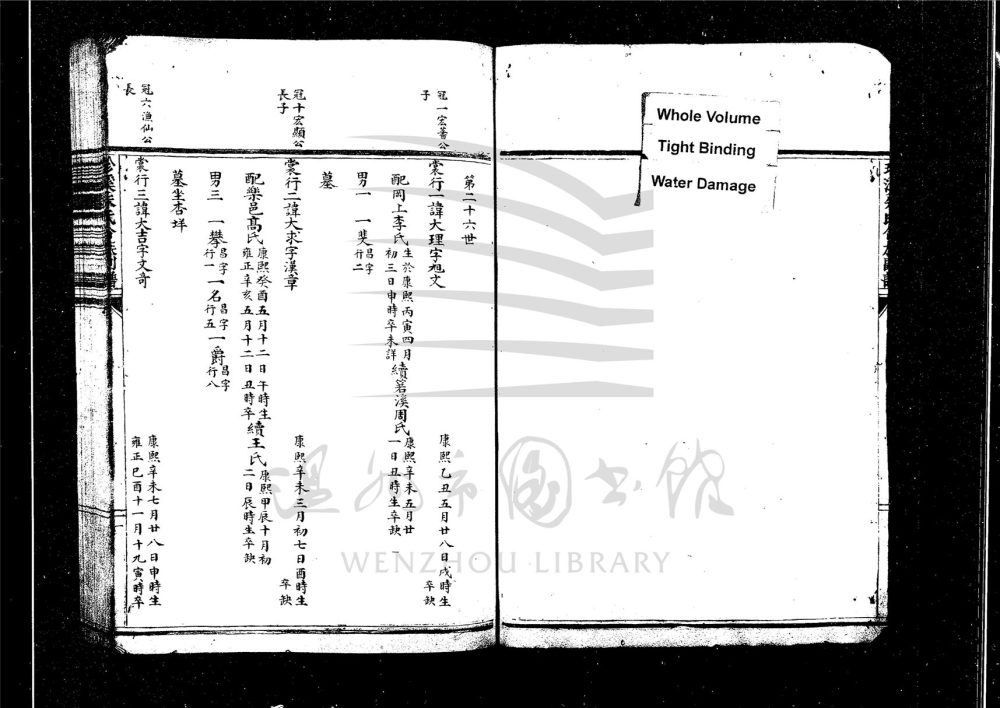 Whole Volume
Tight Binding
Water Damage
第二十六世
冠一宏蓍公
子
棠行一諱大理字旭文
康熙乙丑五月廿八日戌時生
卒缺
配岡上李氏
生於康熙丙寅四月
初三日申時卒未詳
續箬溪周氏
康熙辛未五月廿
一日丑時生卒缺
男一
一斐
昌字
行二
墓
冠十宏顯公
長子
棠行二諱大求字漢章
康熙辛未三月初七日酉時生
卒缺
配樂邑髙氏
康熙癸酉五月十二日午時生
雍正辛亥五月十二日丑時卒
續王氏
康熙甲辰十月初
二日辰時生卒缺
男三
一攀
昌字
行一
一名
昌字
行五
一爵
昌字
行八
墓坐杏垟
冠六漁仙公
長
棠行三諱大吉字文奇
康熙辛未七月廿八日申時生
雍正已酉十一月十九寅時卒
溫州市圖书館
WENZHOU LIBRARY